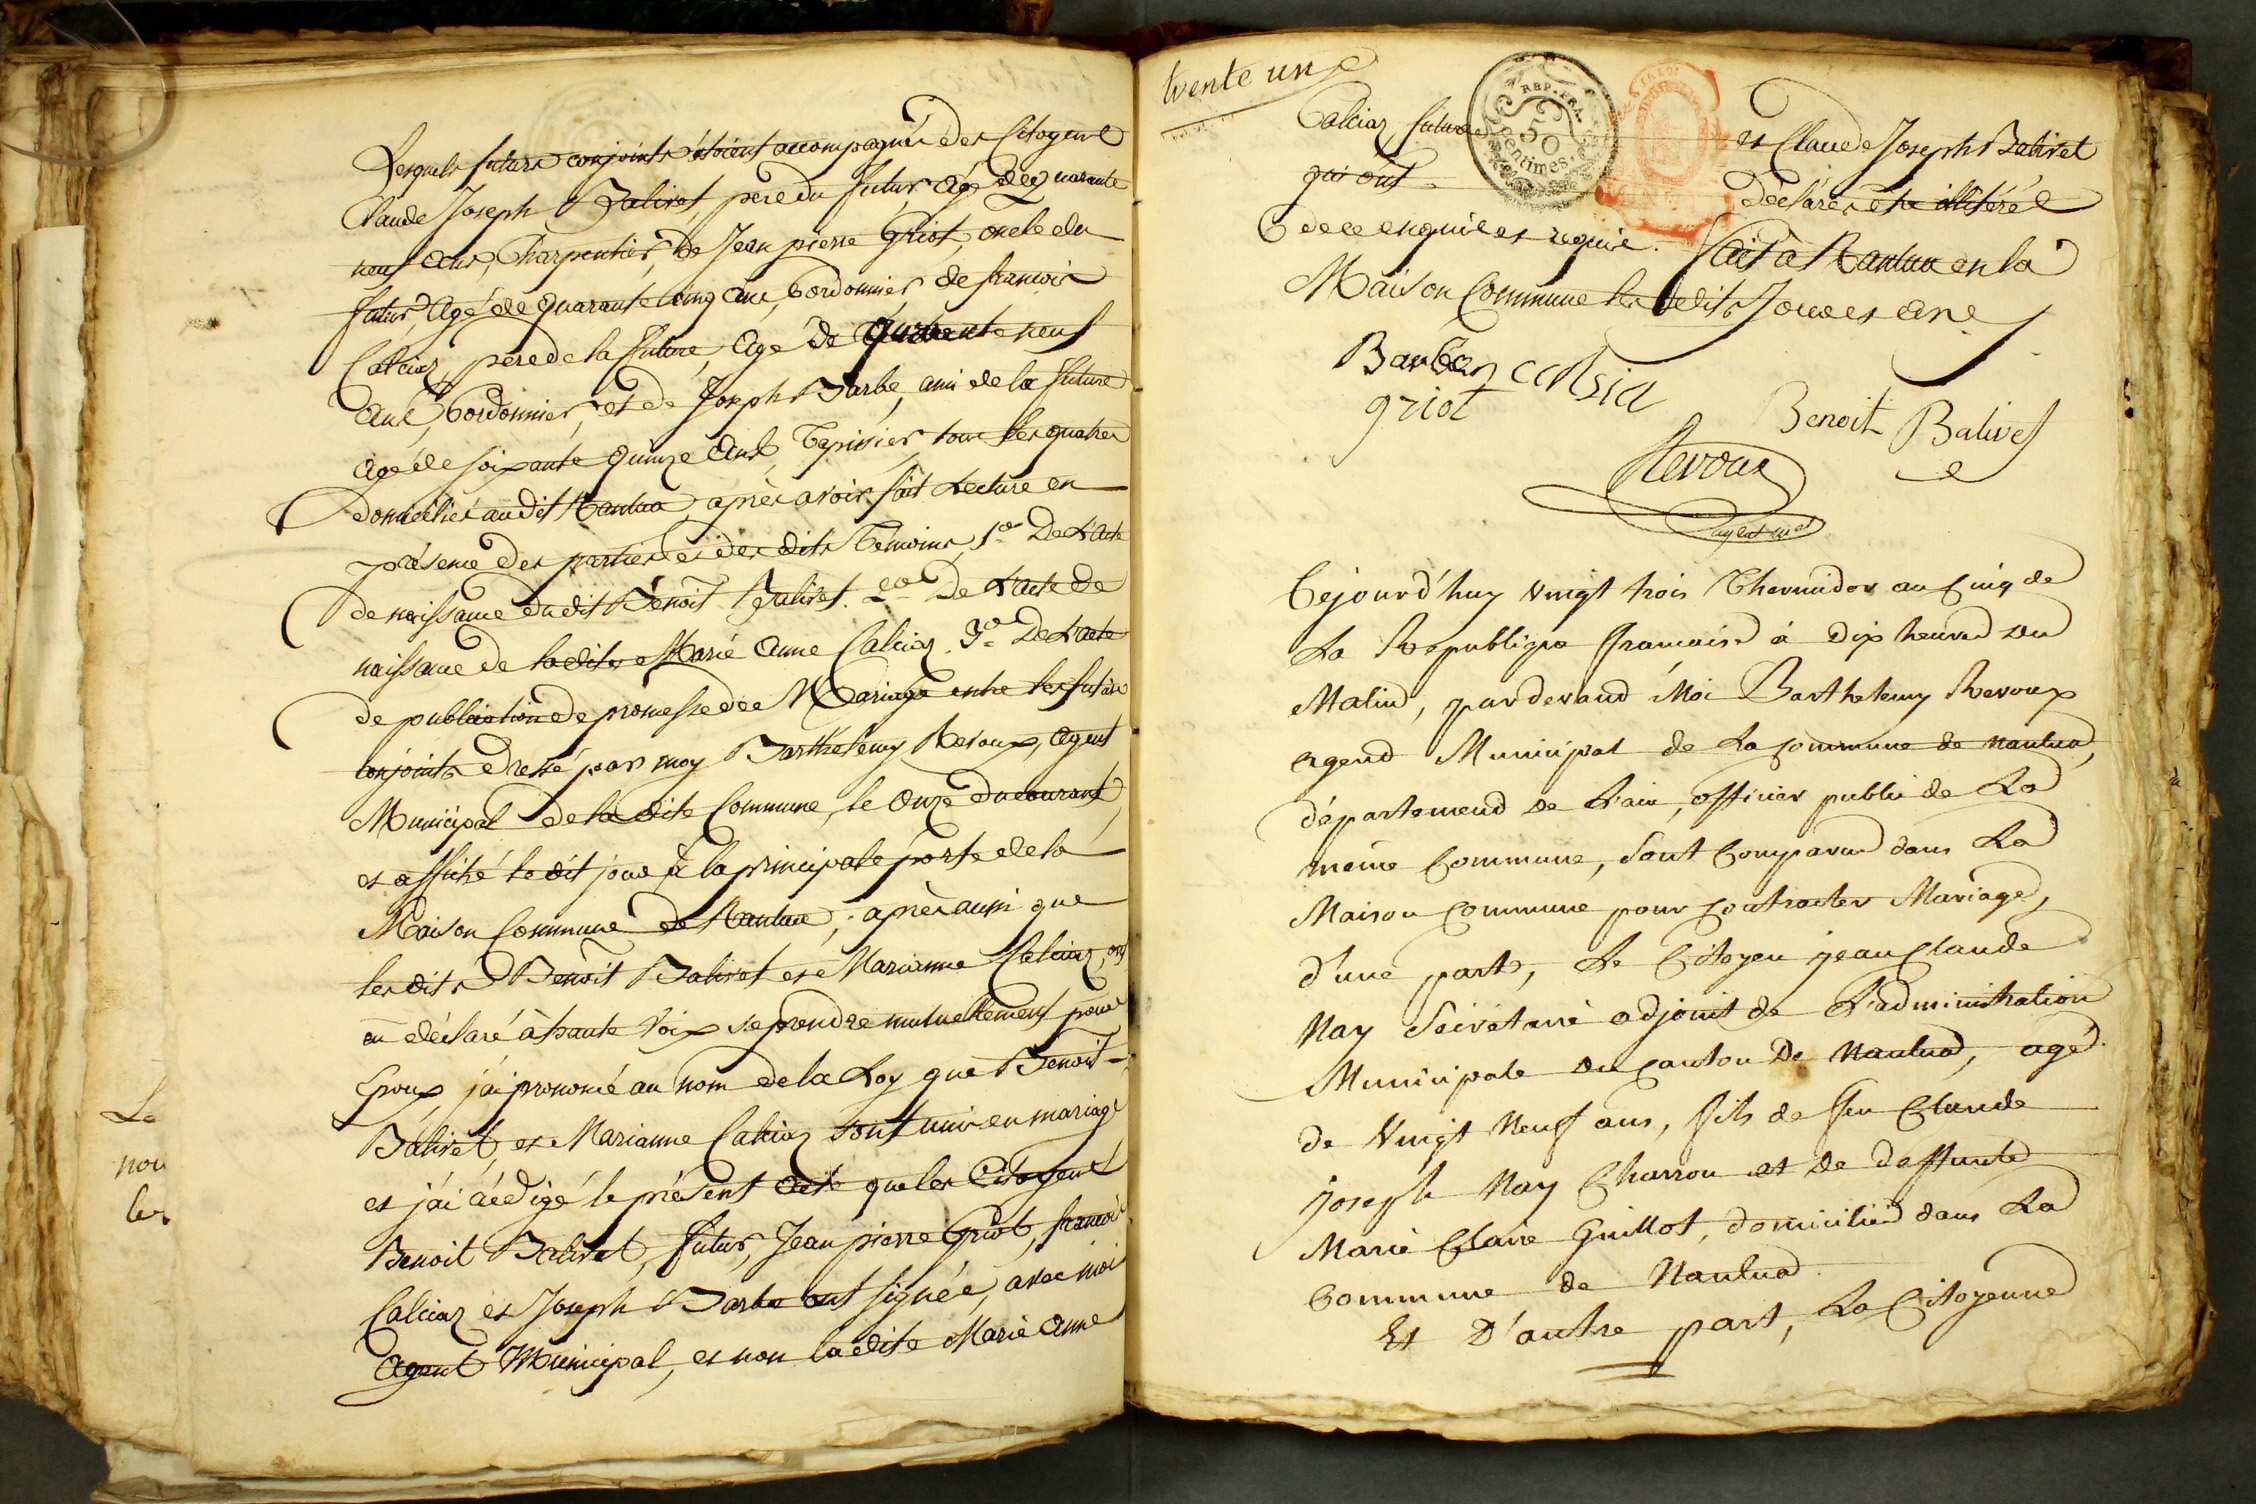 Lesquels futurs conjoints étoient accompagnés des Citoyens
Claude Joseph Balivet, pere du futur, agé de quarante
neuf ans, Charpentier, de Jean pierre Griot, oncle du
futur, agé de quarante cinq ans, Cordonnier, de francois
Calciaz, pere de la future, agé de quarante neuf
ans, Cordonnier, et de Joseph Barbe, ami de la future
agé de soixante quinze ans, Tapissier, tous les quatre
domiciliés audit Nantua, après avoir fait Lecture en
présence des parties et des dits Témoins, 1º De L'acte
de naissance du dit Benoit Balivet. 2º De L'acte de
naissance de la dite Marie Anne Calciaz. 3º De L'acte
de publication de promesse de Mariage entre les futurs
conjoints dressé par moy Barthélemy Revoux, agent
Municipal de la dite Commune, le onze du courant,
et affiché le dit jour à la principale porte de la
Maison Commune de Nantua; après aussi que
les dits Benoit Balivet et Marianne Calciaz, ont
eu déclaré à haute voix se prendre mutuellement pour
Epoux, j'ai prononcé au nom de la Loy que Benoit
Balivet, et Marianne Calciaz sont unis en mariage
et j'ai rédigé le présent acte que les Citoyens
Benoit Balivet, futur, Jean pierre Griot, francois
Calciaz et Joseph Barbe ont signés, avec moi
Agent Municipal, et non la dite Marie Anne
Le
nou
les
trente un
REP. FRA.
50
Centimes.
Calciaz, future et Claude Joseph Balivet
qui ont déclarés etre illitérés
de ce enquis et requis. fait à Nantua en la
Maison Commune les dits Jour et an
Barbe calsia
griot
Benoit Balivet
Revoux
agent mal
Cejourd'huy vingt trois Thermidor an cinq de
La Republique francaise à dix heures du
Matin, pardevand Moi Barthelemy Revoux
agend Municipal de La commune de nantua,
département de L'ain, officier public de La
même Commune, sont comparus dans La
Maison Commune pour contracter Mariage,
d'une part, Le Citoyen jean Claude
Nay Sécrétaire adjoint de L'administration
Municipale du Canton De Nantua, agé
de Vingt Neuf ans, fils de feu Claude
joseph Nay Charron et de deffunte
Marie Claire Guillot, domicilié dans La
Commune de Nantua
Et D'autre part, La Citoyenne